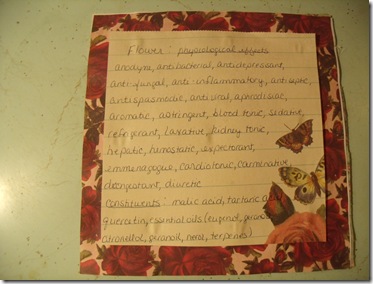 Flower: physiological effects
anodyne, antibacterial, antidepressant,
antifungal, anti-inflammatory, antiseptic,
antispasmodic, antiviral, aphrodisiac,
aromatic, astringent, blood tonic, sedative,
refrigerant, laxative, kidney tonic,
hepatic, hemostatic, expectorant,
emmenagogue, cardiotonic, carminative,
decongestant, diuretic
Constituents: malic acid, tartaric acid
quercetin, essential oils (eugenol,
citronellol, geraniol, nerol, terpenes)